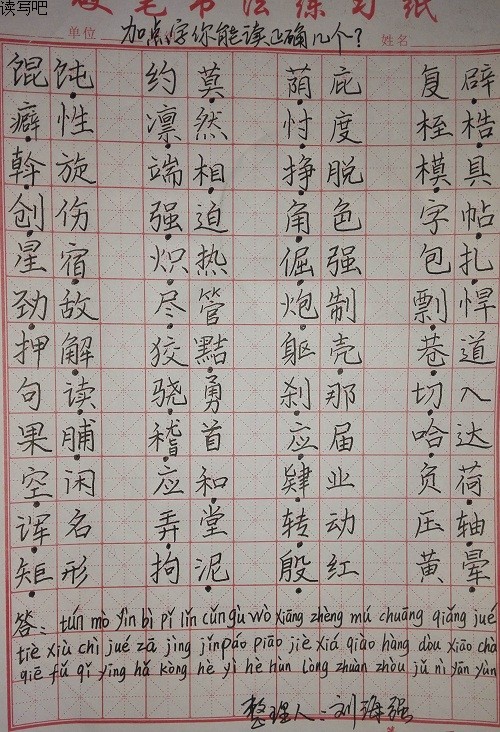 读写吧
硬笔书法练习纸
单位 加点字你能读正确几个? 姓名
馄饨 约莫 荫庇 复辟
癖性 凛然 忖度 桎梏
斡旋 端相 挣脱 模具
创伤 强迫 角色 字帖
星宿 炽热 倔强 包扎
劲敌 尽管 炮制 剽悍
押解 狡黠 躯壳 巷道
句读 骁勇 刹那 切入
果脯 稽首 应届 哈达
空闲 应和 肄业 负荷
诨名 弄堂 转动 压轴
矩形 拘泥 殷红 黄晕
答: tún mò yìn bì pǐ lǐn cǔn gù wò xiàng zhèng mú chuāng qiǎng jué
tiè xiù chì jué zā jìng jǐn páo piāo jiè xiá qiào hàng dòu xiāo chà
qiē fǔ qǐ yìng hǎ kòng hè yì hè hùn lòng zhuàn zhòu jǔ nì yān yùn
整理人:刘海强